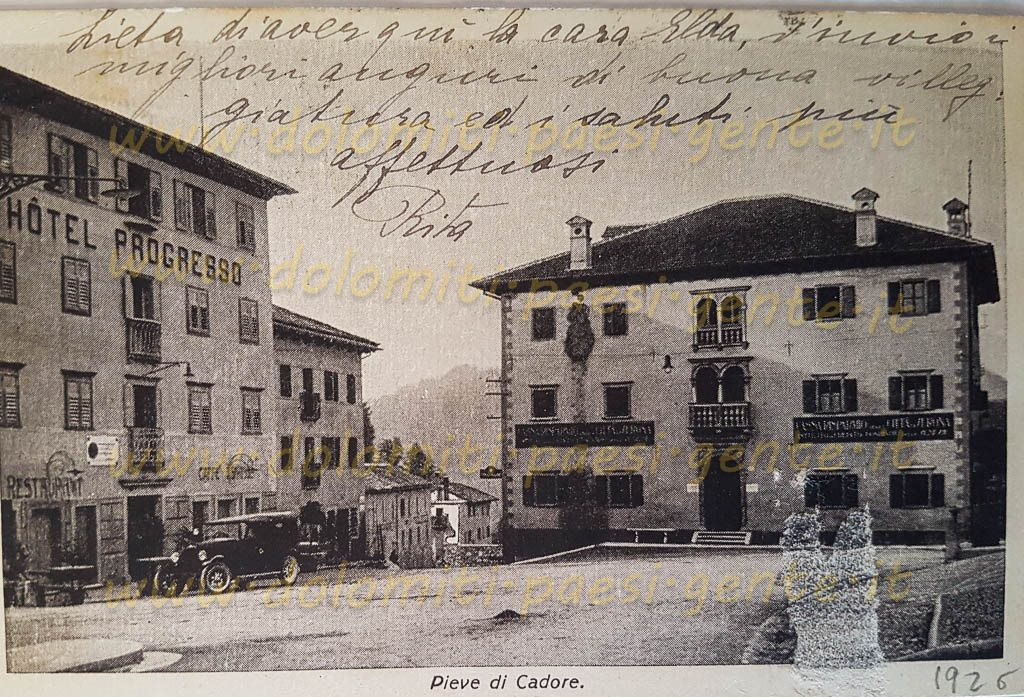 Lieta di aver quì la cara Elda, t'invio i
migliori auguri di buona villeg.
giatura ed i saluti più
affettuosi
Rita
www·dolomiti·paesi·gente·it
HÔTEL PROGRESSO
www·dolomiti·paesi·gente·it
CASSA DI RISPARMIO DELLA CITTÀ DI VERONA
CASSA DI RISPARMIO DELLA CITTÀ DI VERONA
RESTAURANT
CAFFÈ
www·dolomiti·paesi·gente·it
www·dolomiti·paesi·gente·it
Pieve di Cadore.
1926